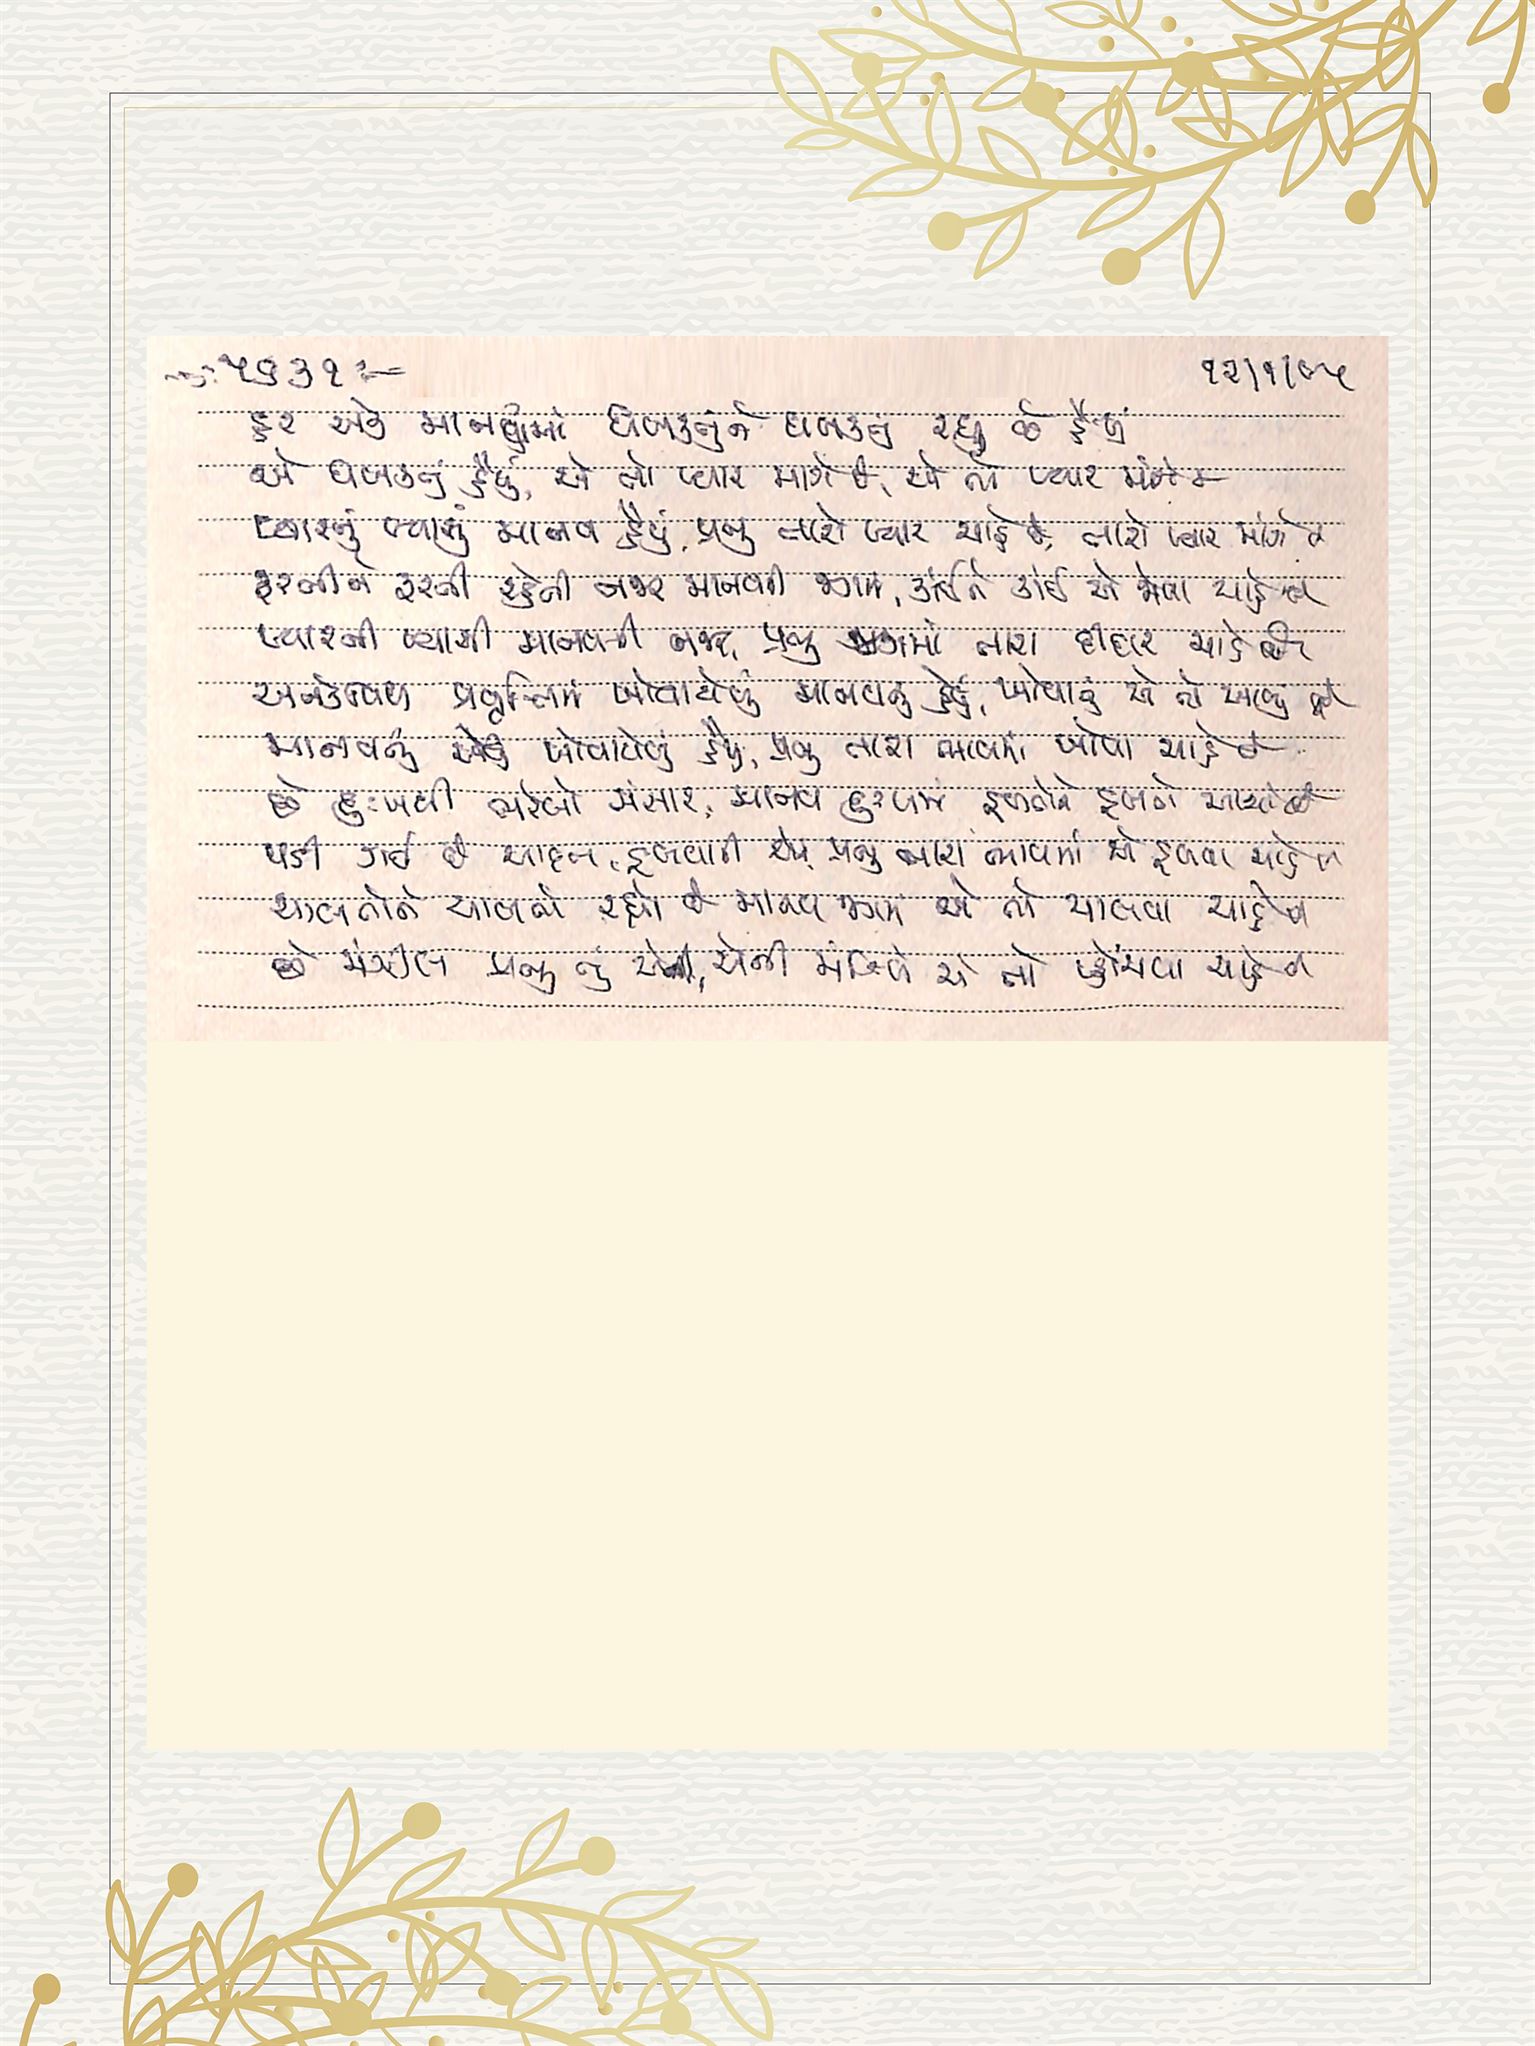 ૫૬૩૧
હર એક માનવીમાં ધબકતુંને ધબકતું રહ્યું છે હૈયું
એ ધબકતું હૈયું, એ તો પ્યાર માગે છે, એ તો પ્યાર માંગે છે
પ્યારનું પ્યાસું માનવ હૈયું, પ્રભુ તારો પ્યાર ચાહે છે, તારો પ્યાર માંગે છે
ફરતીને ફરતી રહેતી નજર માનવની જગમાં, કાંઈને કાંઈ એ જોવા ચાહે છે
પ્યારની પ્યાસી માનવની નજર, પ્રભુ જગમાં તારા દીદાર ચાહે છે
અનેકવિધ પ્રવૃત્તિમાં ખોવાયેલું માનવનું હૈયું, ખોવાતું એ તો આવ્યું છે
માનવનું એવું ખોવાયેલું હૈયું, પ્રભુ તારા ભાવમાં ખોવા ચાહે છે
છે દુઃખથી ભરેલો સંસાર, માનવ દુઃખમાં ડૂબતોને ડૂબતો આવ્યો છે
પડી ગઈ છે આદત ડૂબવાની એને પ્રભુ તારા ભાવમાં એ ડૂબવા ચાહે છે
ચાલતોને ચાલતો રહ્યો છે માનવ જગમાં એ તો ચાલવા ચાહે છે
છે મંઝીલ પ્રભુ તું એની, એની મંઝિલે એ તો પહોંચવા ચાહે છે